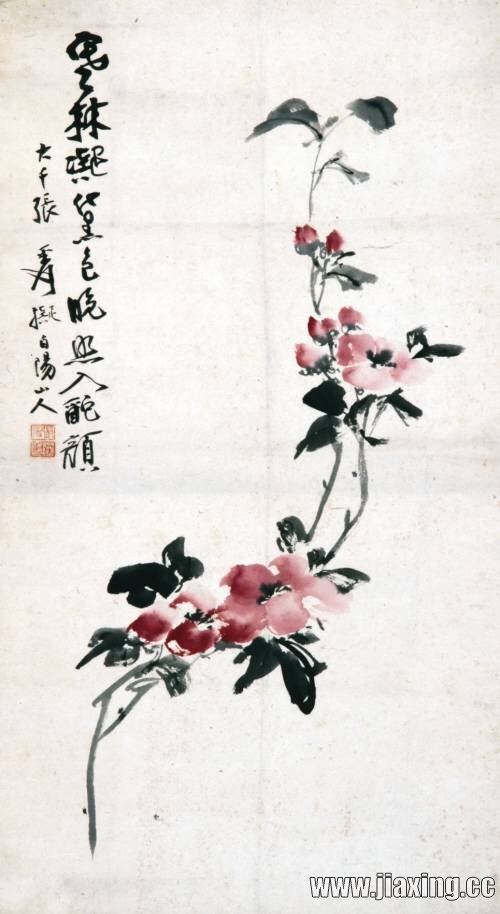 寒林黛色晚照入酡顏
大千張爰擬白陽山人
www.jiaxing.cc